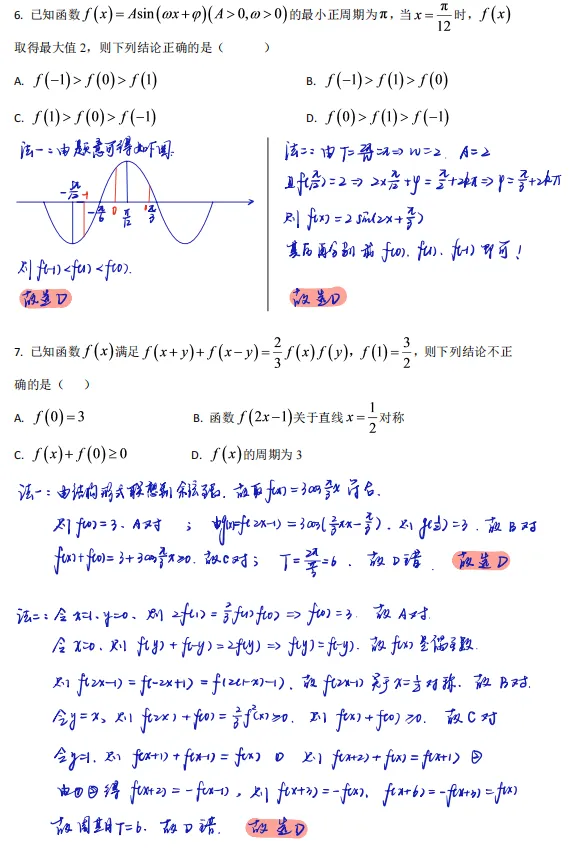 6. 已知函数 f(x)=Asin(ωx+φ)(A>0,ω>0)的最小正周期为π,当 x=π/12 时, f(x)
取得最大值 2, 则下列结论正确的是( )
A. f(-1)>f(0)>f(1) B. f(-1)>f(1)>f(0)
C. f(1)>f(0)>f(-1) D. f(0)>f(1)>f(-1)
法一:由题意可得如下图.
-5π/12 -1 -π/6 0 π/12 1 π/3
则 f(-1)<f(1)<f(0).
故选D
法二:由 T=2π/ω=π⇒ω=2. A=2
且f(π/12)=2⇒2×π/12+φ=π/2+2kπ⇒φ=π/3+2kπ
则 f(x)=2sin(2x+π/3)
其后再分别 f(0). f(1). f(-1) 即可!
故选D
7. 已知函数 f(x)满足 f(x+y)+f(x-y)=2/3 f(x)f(y), f(1)=3/2, 则下列结论不正
确的是( )
A. f(0)=3 B. 函数 f(2x-1)关于直线 x=1/2 对称
C. f(x)+f(0)≥0 D. f(x)的周期为 3
法一:由结构形式联想到余弦. 故取f(x)=3cosπ/3x 符合.
则f(0)=3. A对 ; 由g(x)=f(2x-1)=3cos(2/3πx-π/3). 则 g(1/2)=3. 故B对
f(x)+f(0)=3+3cosπ/3x≥0. 故C对; T=2π/(π/3)=6. 故D错. 故选D
法二:令x=1.y=0. 则 2f(1)=2/3f(1)f(0)⇒f(0)=3. 故A对.
令x=0. 则 f(y)+f(-y)=2f(y)⇒f(y)=f(-y). 故f(x)是偶函数.
则f(2x-1)=f(-2x+1)=f(2(1-x)-1). 故f(2x-1)关于x=1/2对称. 故B对.
令y=x. 则 f(2x)+f(0)=2/3f²(x)≥0. 则 f(x)+f(0)≥0. 故C对
令y=1. 则 f(x+1)+f(x-1)=f(x) ① 则 f(x+2)+f(x)=f(x+1) ②
由①②得 f(x+2)=-f(x-1), 则f(x+3)=-f(x). f(x+6)=-f(x+3)=f(x)
故周期T=6. 故D错. 故选D